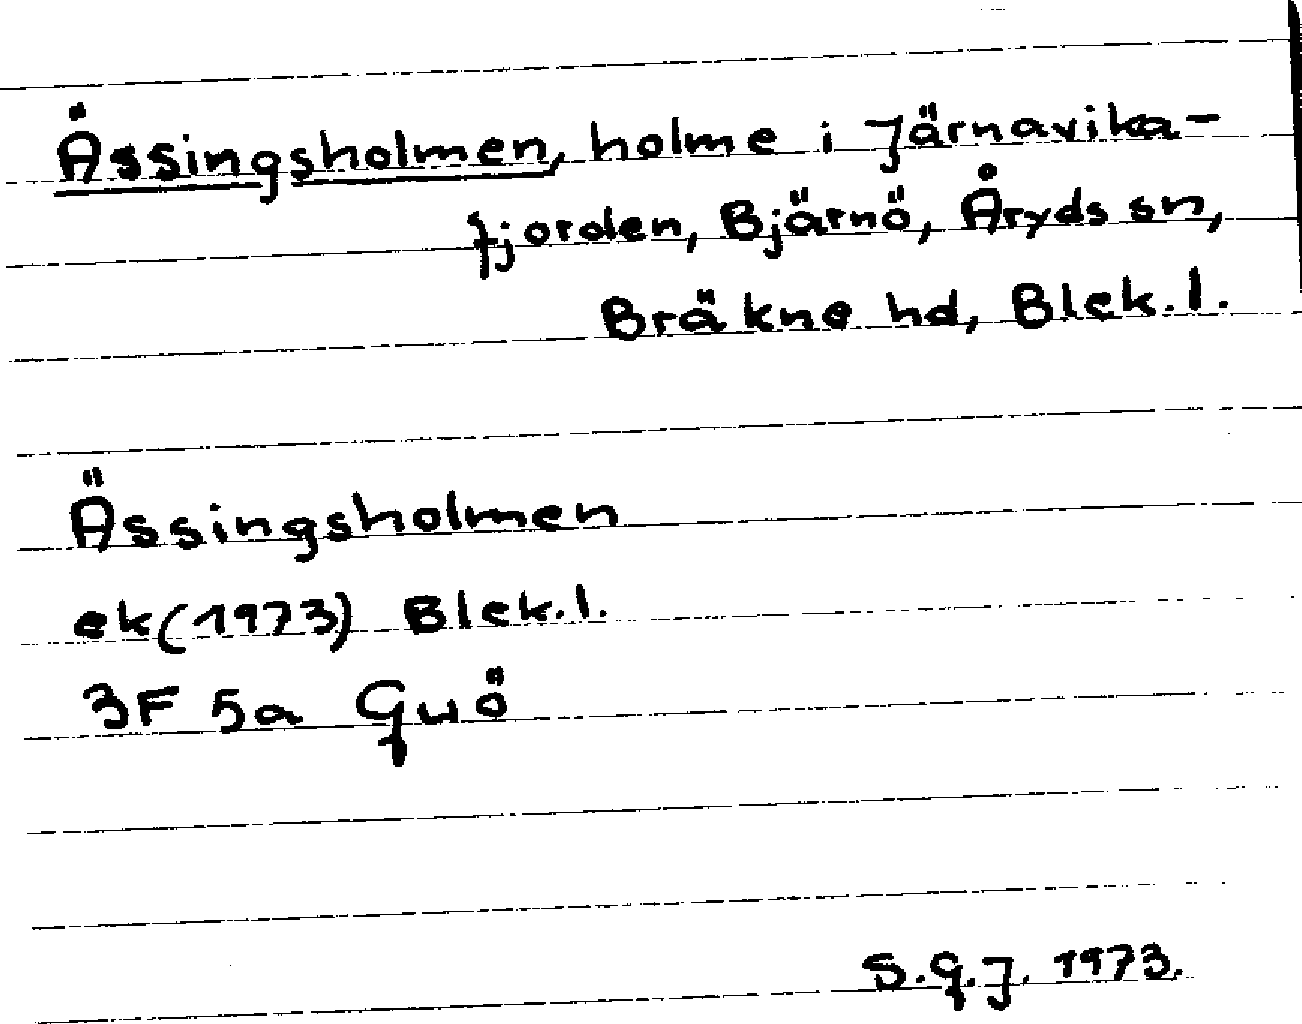 Ässingsholmen, holme i Järnavika-
fjorden, Bjärnö, Åryds sn,
Bräkne hd, Blek.l.
Ässingsholmen
ek (1973) Blek.l.
3F 5a Guö
S.G.J. 1973.